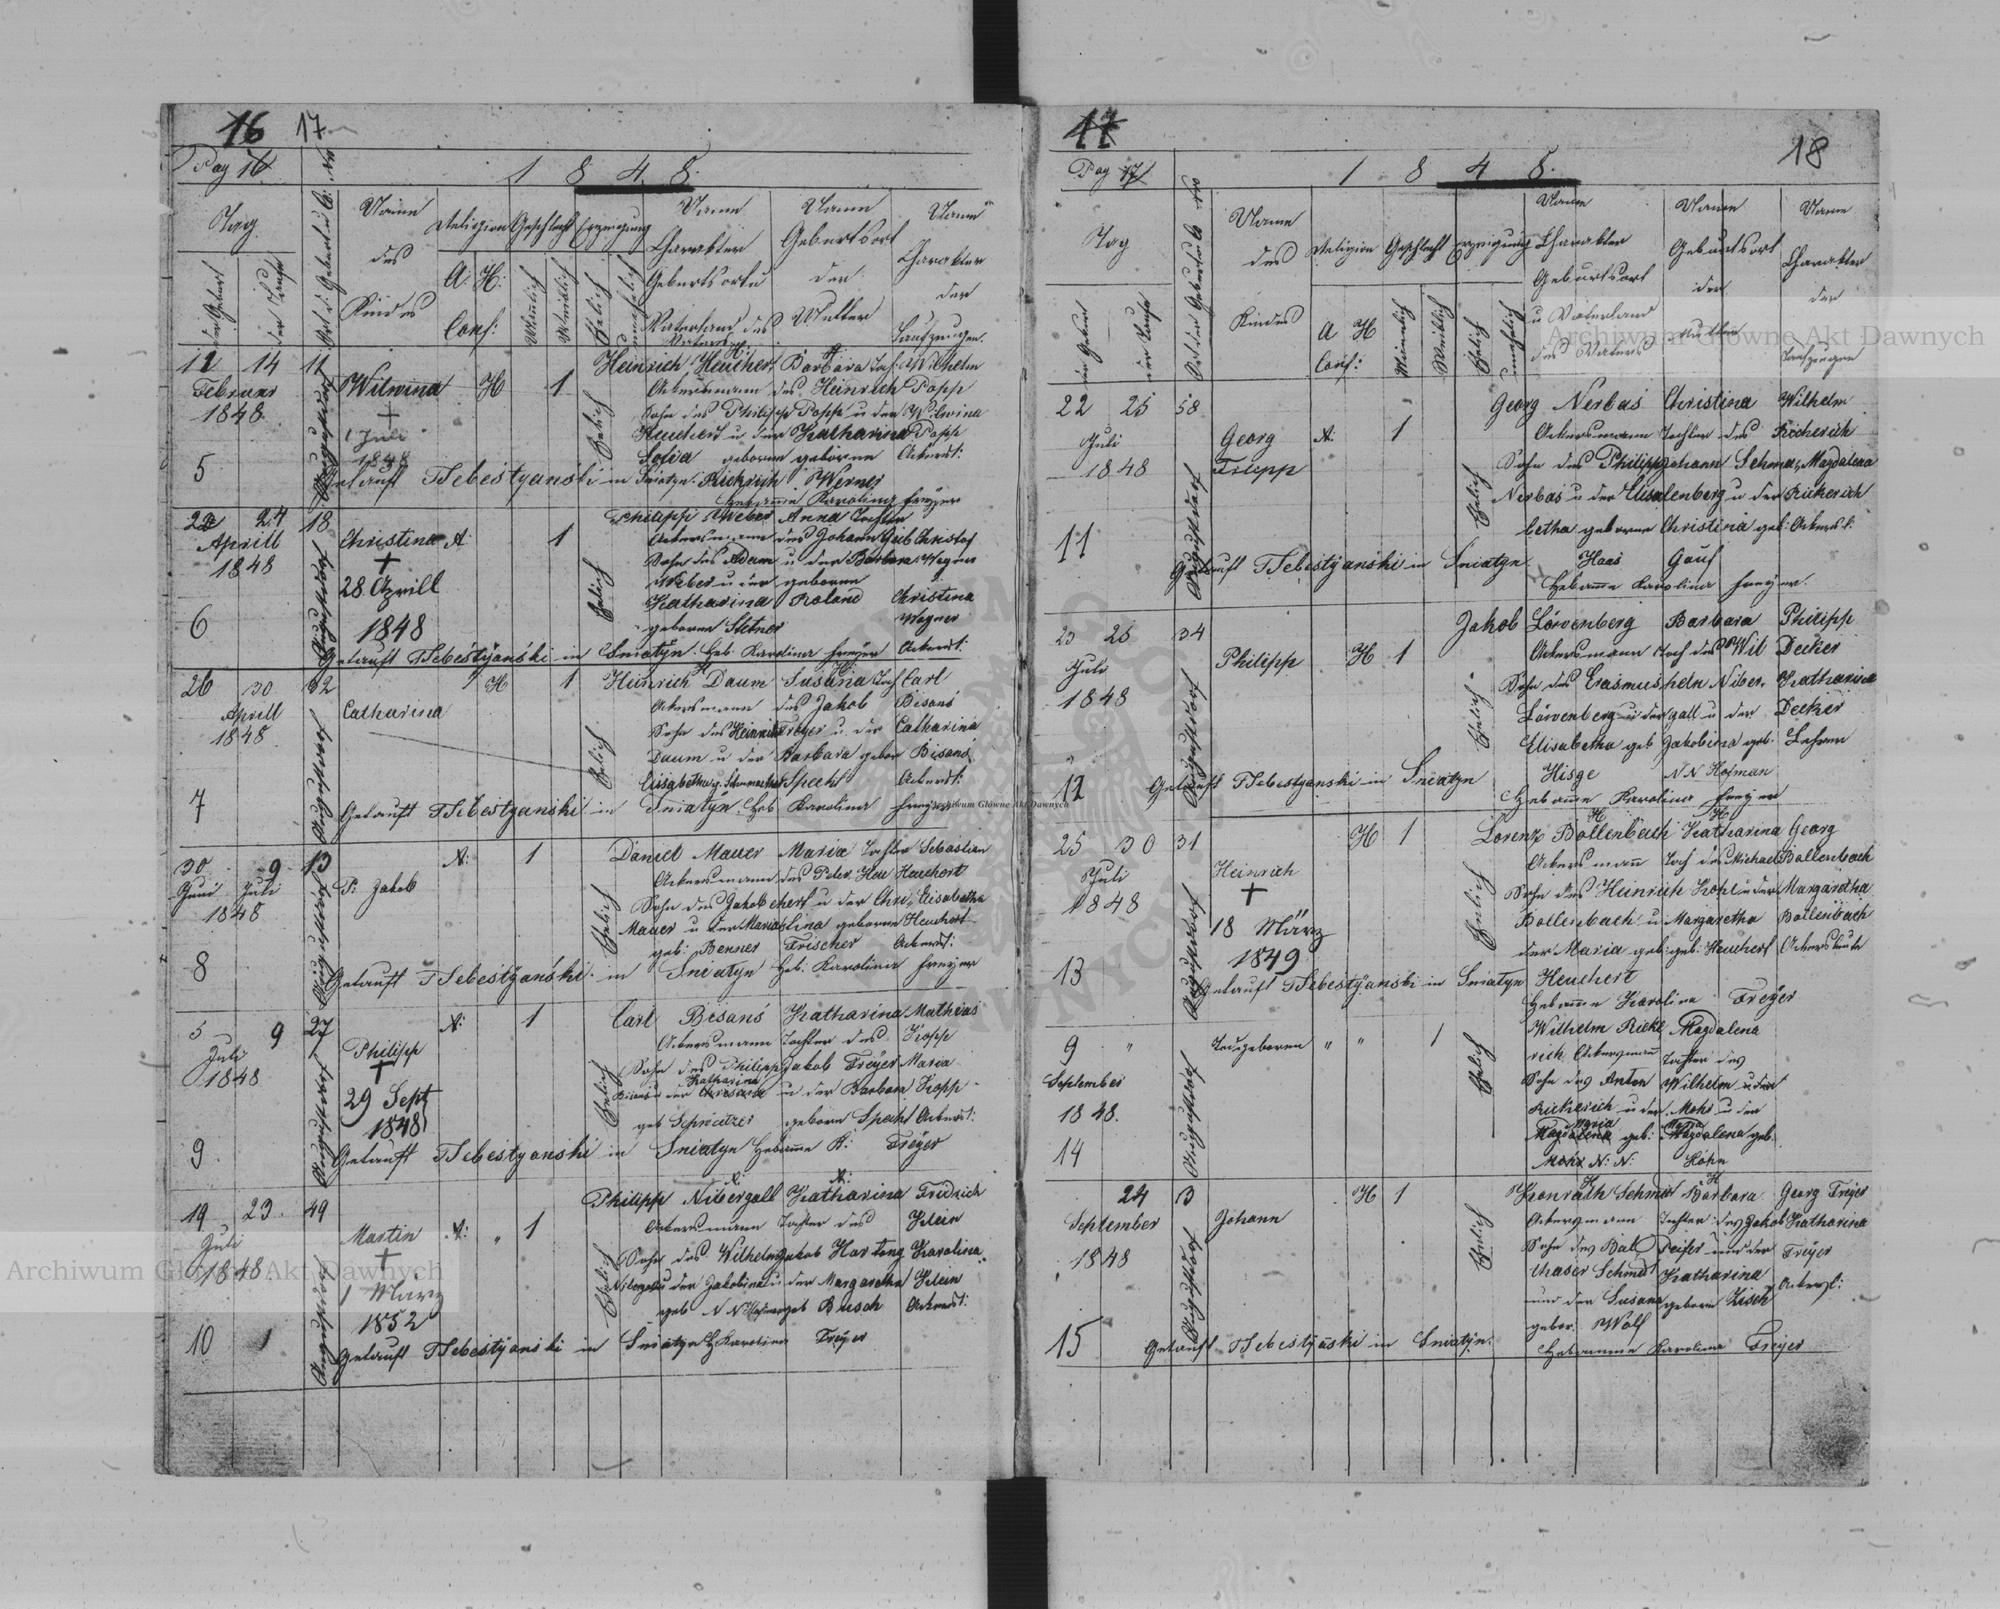 16 17
Pag 16
1 8 4 8.
Tag
der Geburt
der Taufe
Ort d: Geburt u. C: Nro
Name des Kindes
Religion
A: H:
Conf:
Geschlecht
Männlich
Weiblich
Erzeugung
Ehelich
unehelich
Name Charakter Geburtsort u Vaterland des Vaters
Name Geburtsort der Mutter
Name Charakter der Taufzeugen.
12 14 11
Februar
1848
5
Augustdorf
Wilwina
1 Juli
1848
H 1
Ehelich
Heinrich Heuchert
Ackersmann
Sohn des Philipp
Heuchert u der
Sofia geborne
Barbara
des Heinrich
Popp u der
Katharina
geborne
Wilhelm
Popp
Wilwina
Popp
Ackersl:
Getauft TSebestyanski in Sniatyn. Rickrich Werner
Hebamme Karolina Freyer
22 24 18
Aprill
1848
6
Augustdorf
Christina A
28 Aprill
1848
1
Ehelich
Philipp Weber
Ackersmann
Sohn des Adam
Weber u der
Katharina
geborne Stetner
Anna Tochter
des Johann Geib
u der Barbara
geborne
Roland
Christof
Wagner
Christina
Wagner
Ackersl:
Getauft TSebestyanski in Sniatyn. Heb: Karolina Freyer
26 30 32
Aprill
1848
7
Augustdorf
Catharina
H 1
Ehelich
Heinrich Daum
Ackersmann
Sohn des Heinrich
Daum u der
Elisabetha
Susana Toch
des Jakob
Freyer u. der
Barbara gebor
Specht
Carl
Bisans
Catharina
Bisans
Ackersl:
Getauft TSebestyanski in Sniatyn. Heb Karolina Freyer
30 9 13
Juni Juli
1848
8
Augustdorf
P: Jakob
A: 1
Ehelich
Daniel Mauer
Ackersmann
Sohn des Jakob
Mauer u der Maria
geb: Benner
Maria Tochter
des Peter Heu
chert u der Chris
tina geborne
Frischer
Sebastian
Heuchert
Elisabetha
Heuchert
Ackersl:
Getauft TSebestyanski in Sniatyn Heb: Karolina Freyer
5 9 27
Juli
1848
9
Augustdorf
Philipp
29 Sept
1848
A: 1
Ehelich
Carl Bisans
Ackersmann
Sohn des Philipp
Bisans u der Katharina
geb Schweitzer
Katharina
Tochter des
Jakob Freyer
u der Barbara
geborne Specht
Mathias
Kopp
Maria
Kopp
Ackersl:
Getauft TSebestyanski in Sniatyn Hebamme K: Freyer
19 23 49
Juli
1848
10
Augustdorf
Martin
1 März
1852
A: 1
Ehelich
Philipp Nibergall
Ackersmann
Sohn des Wilhelm
Nibergall u der Jakobina
geb N N Hofman
Katharina
Tochter des
Jakob Hartong
u der Margaretha
geb Busch
Fridrich
Klein
Karolina
Klein
Ackersl:
Getauft TSebestyanski in Sniatyn H Karolina Freyer
17 18
Pag 17
1 8 4 8.
Tag
der Geburt
der Taufe
Ort der Geburt u C Nro
Name des Kindes
Religion
A H
Conf:
Geschlecht
Männlich
Weiblich
Erzeugung
Ehelich
unehelich
Name Charakter Geburtsort u Vaterland des Vaters
Name Geburtsort der Mutter
Name Charakter der Taufzeugen
22 25 58
Juli
1848
11
Augustdorf
Georg
Filipp
A: 1
Ehelich
Georg Nerbas
Ackersmann
Sohn des Philipp
Nerbas u der Elisa
betha geborne
Haas
Christina
Tochter des
Johann Schma
lenberg u der
Christina geb:
Gauf
Wilhelm
Rickerich
Magdalena
Rickerich
Ackersl:
Getauft TSebestyanski in Sniatyn
Hebamme Karolina Freyer.
23 25 34
Juli
1848
12
Augustdorf
Philipp
H 1
Ehelich
Jakob Löwenberg
Ackersmann
Sohn des Erasmus
Löwenberg u der
Elisabetha geb
Hisge
Barbara
Toch des Wil
heln Niber
gall u der
Jakobina geb.
N N Hofman
Philipp
Decker
Katharina
Decker
Getauft TSebestyanski in Sniatyn
Hebamme Karolina Freyer
25 30 31
Juli
1848
13
Augustdorf
Heinrich
18 März
1849
H 1
Ehelich
Lorenz Bollenbach
Ackersmann
Sohn des Heinrich
Bollenbach u
der Maria geb:
Heuchert
Katharina
Toch des Michael
Kohl u der
Margaretha
geb: Heuchert
Georg
Bollenbach
Margaretha
Bollenbach
Ackersleute
Getauft TSebestyanski in Sniatyn
Hebamme Karolina Freyer
9 "
September
1848.
14
Augustdorf
Todgeboren " " 1
Ehelich
Wilhelm Ricke
rich Ackersmann
Sohn des Anton
Rickerich u der
Maria
Magdalena geb:
Mohr N: N:
Magdalena
Tochter des
Wilhelm
Mohr u der
Maria
Magdalena geb.
Höhn
24 3
September
1848
15
Augustdorf
Johann
H 1
Ehelich
Konrath Schmit
Ackersmann
Sohn des Bal
thaser Schmit
und der Susana
gebor. Wolf
Barbara
Tochter des Jakob
Peifer und der
Katharina
geborn Kisch
Georg Freyer
Katharina
Freyer
Ackersl:
Getauft TSebestyanski in Sniatyn.
Hebamme Karolina Freyer
Archiwum Główne Akt Dawnych
Archiwum Główne Akt Dawnych
Archiwum Główne Akt Dawnych